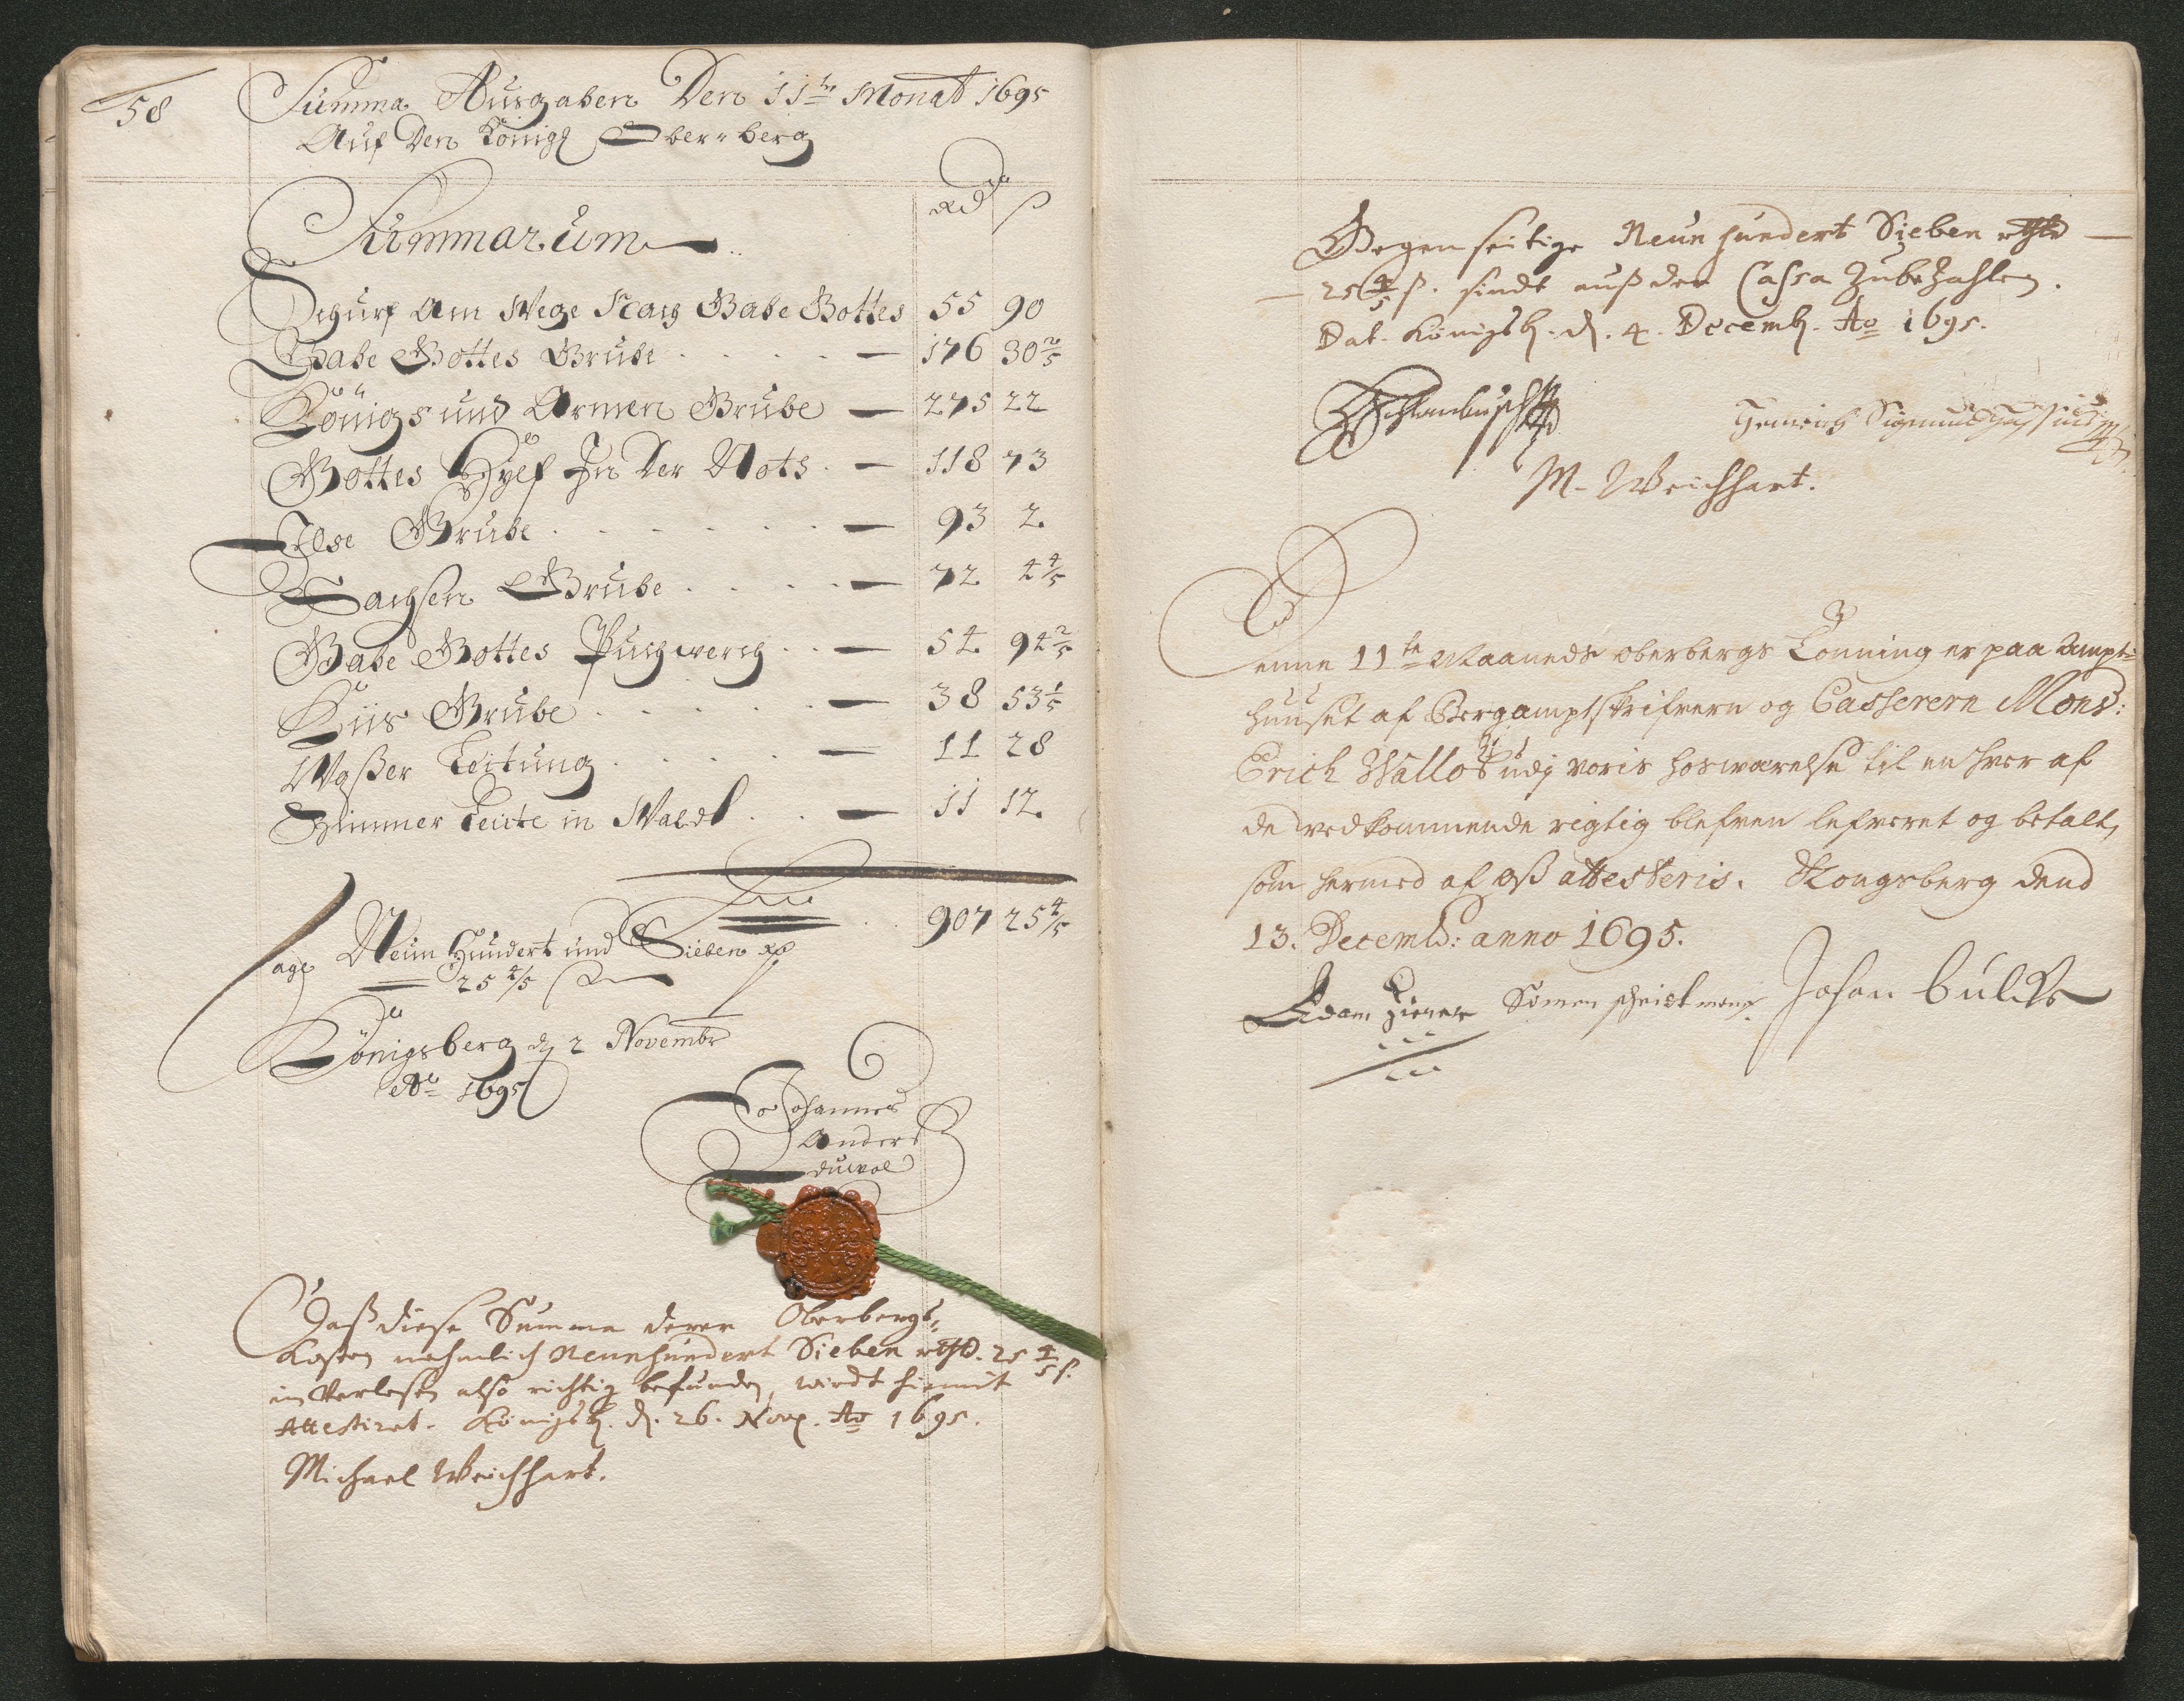 58
Summa Ausgaben Den 11te Monat 1695
Auf Den Königl Ober-berg
Rd ß
Summarum
Schurf Am Wege Nach Gabe Gottes 55 90
Gabe Gottes Grube 176 30 2/5
Königs und Armen Grube 275 22
Gottes Hylf In Der Noth 118 73
Ilse Grube 93 2
Sachsen Grube 72 4 4/5
Gabe Gottes Puchwerch 54 94 2/5
Kiis Grube 38 53 1/5
Waßer Leitung 11 28
Zimmer Leute in Wald 11 12
907 25 4/5
Sage Neun Hundert und Sieben Rd
25 4/5 ß
Königsberg d 2 Novembr
Ao 1695
Johannes
Anders
Daß diese Summa derer Oberbergs-
Kosten nehmlich Neunhundert Sieben rthd. 25 4/5 ß.
im Verlesen also richtig befunden, wirdt hiemit
Attestiret. Königsb. d. 26. Nov. Ao 1695.
Michael Weichhart.
Gegenseitige Neun hundert Sieben rthd
25 4/5 ß. sindt auß der Cassa Zubezahlen.
Dat. Königsb. d. 4. Decemb. Ao 1695.
HSchlanbusch
Heinrich Sigmund Hassius
M. Weichhart.
Denne 11te Maaneds oberbergs Lønning er paa Ampt-
huuset af Bergamptskrifvern og Casserern Mons:
Erich Wallør udj voris hosværelse til en hver af
de vedkommende rigtig blefven lefveret og betalt,
som hermed af oß attesteris. Kongsberg dend
13. Decemb: anno 1695.
Adam Johan